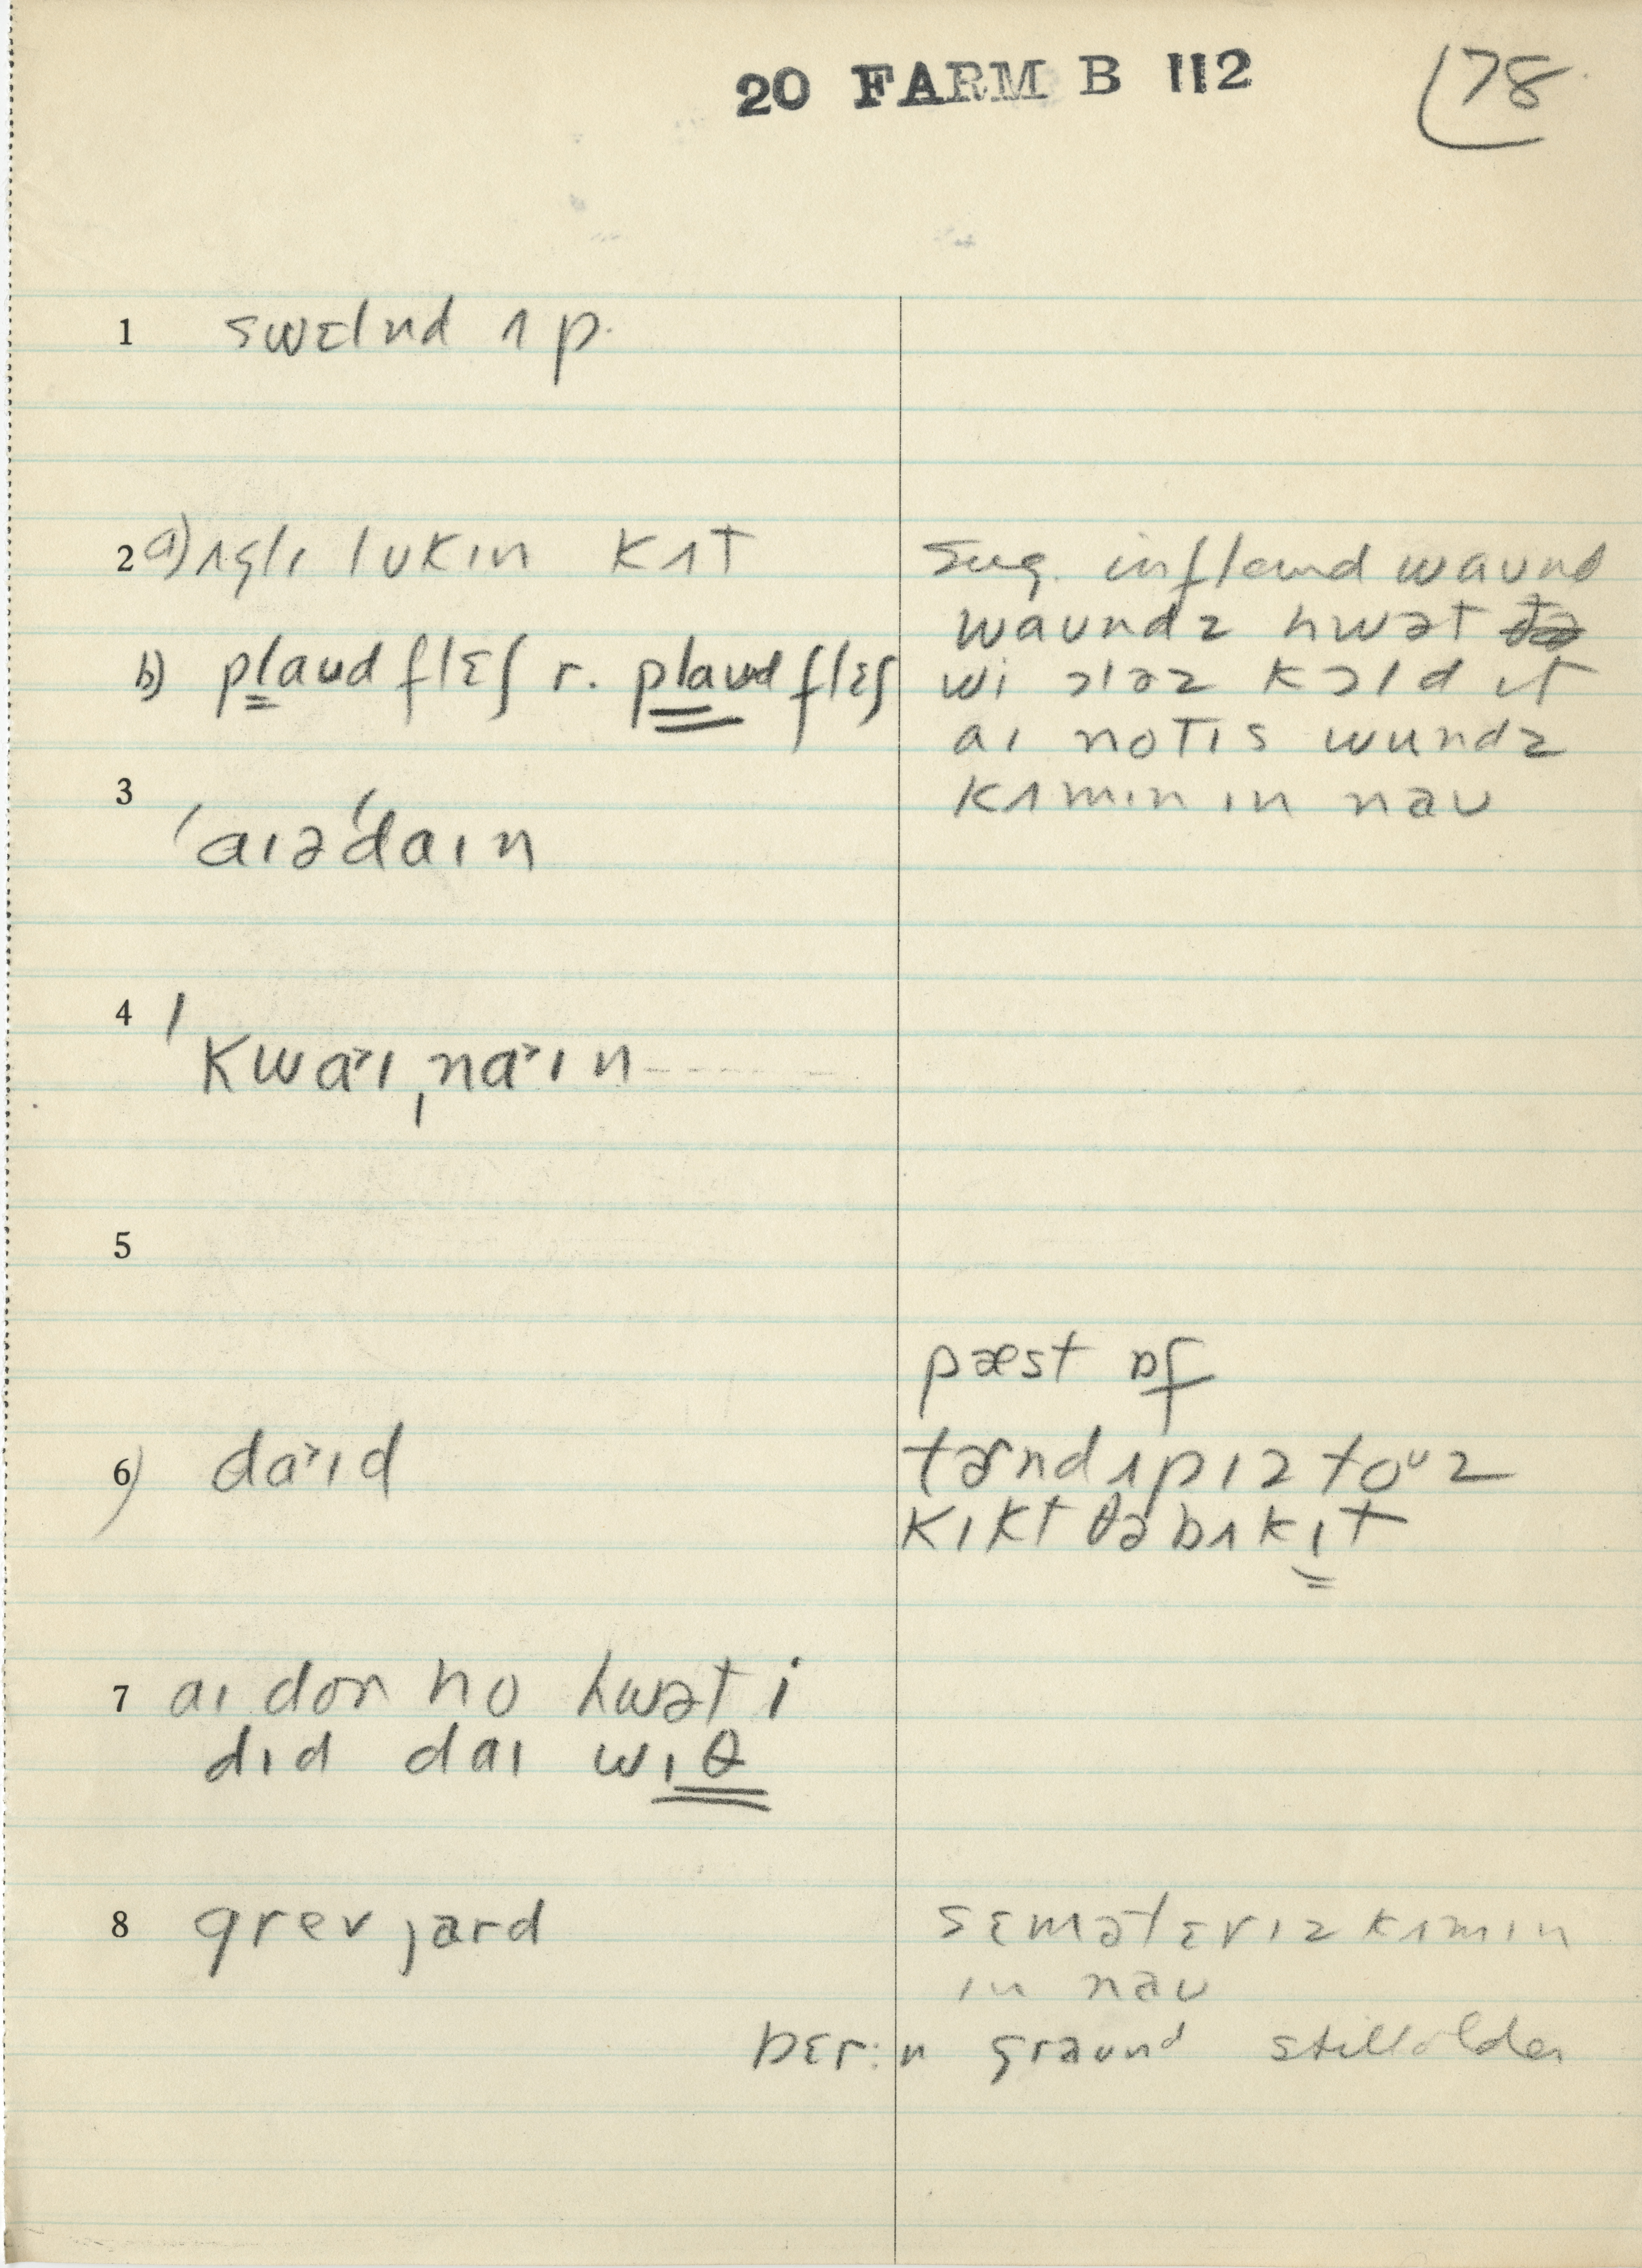 20 FARM B 112
78
1 swɛlnd ʌp.
2 a) ʌglɪ lʊkɪn kʌt
b) plaud flɛʃ r. plaud flɛʃ
Sug. inflamd waund
waundz hwət
wi ɔləz kɔld ɪt
aɪ notɪs wundz
kʌmɪn ɪn nau
3 ˈaɪəˈdaɪn
4 ˈkwaˑɪˌnaˑɪn
5
pæst ɒf
6) daˑɪd
tɚnd ʌp ɪz toᵘz
kɪkt ðə bʌkɪt
7 aɪ don no hwət i
dɪd daɪ wɪθ
8 grev jard
sɛmətɛrɪz kʌmɪn
ɪn nau
bɛrɪn graund still older